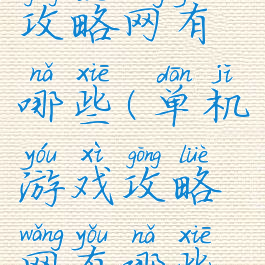 攻略网有
nǎ xiē dān jī
哪些(单机
yóu xì gōng lüè
游戏攻略
wǎng yǒu nǎ xiē
网有哪些